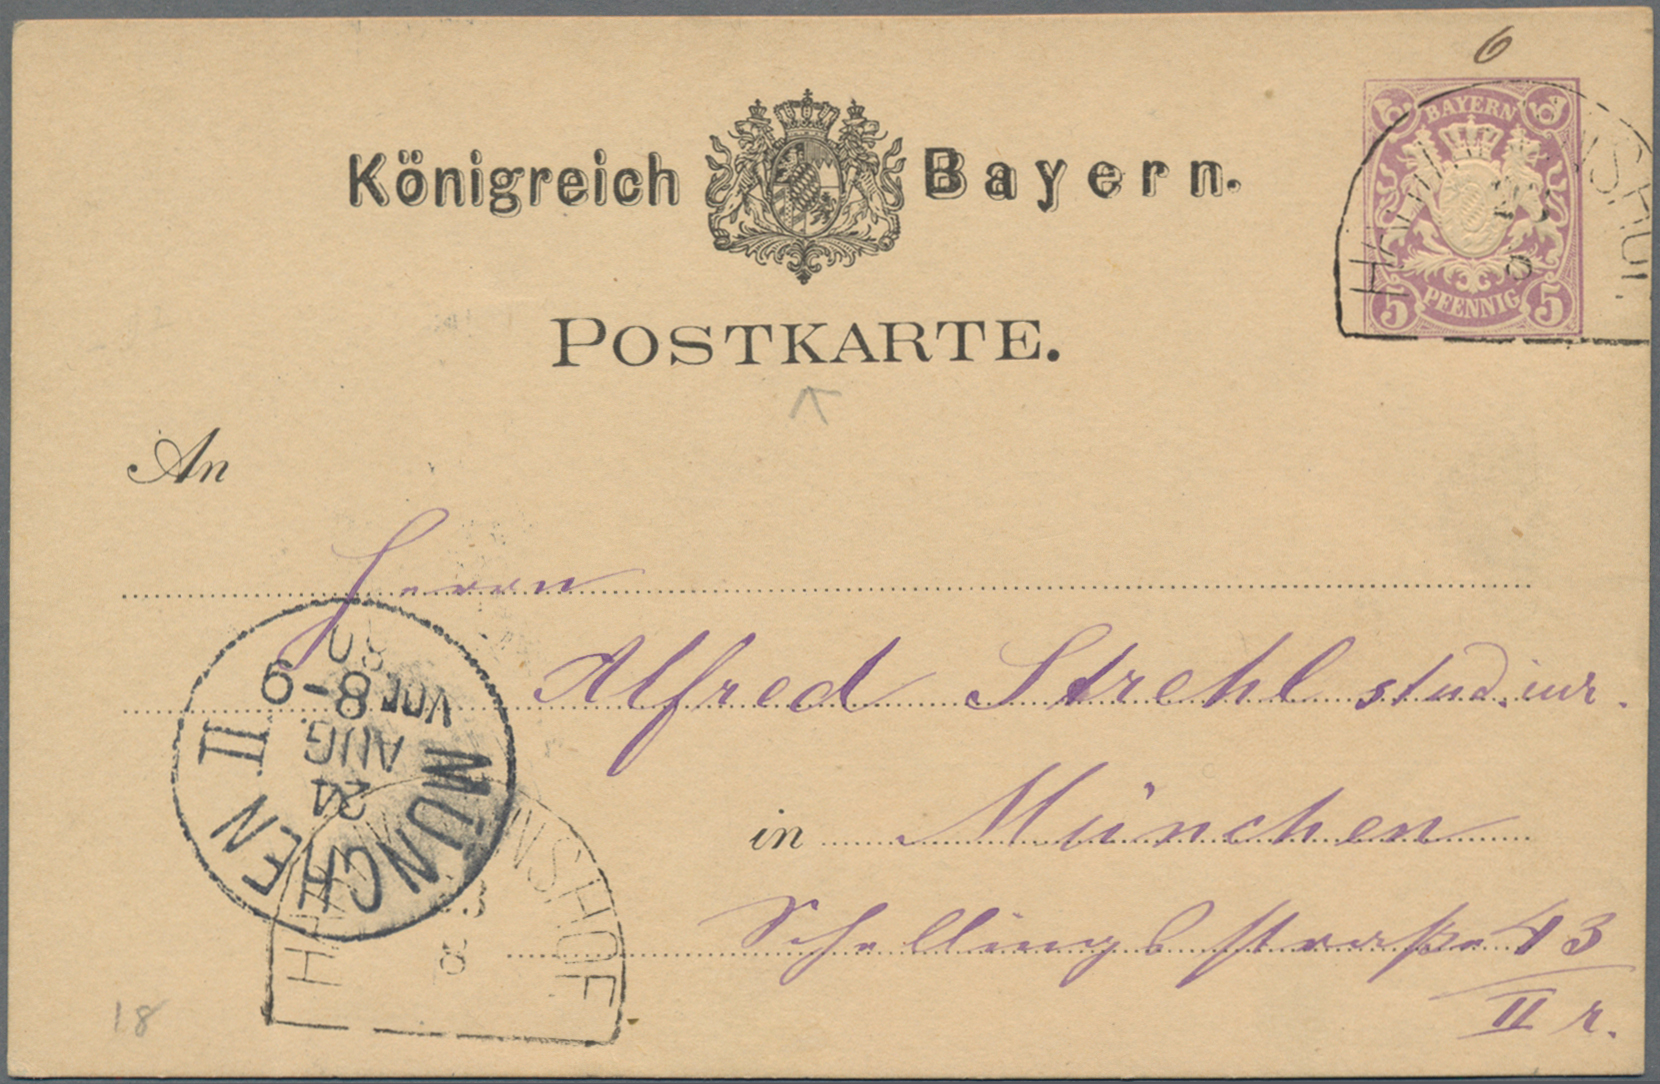 6
Königreich Bayern.
BAYERN
5 PFENNIG 5
POSTKARTE.
An
Herrn
Alfred Strehl stud. iur.
in München
Schellingstraße 43
II r.
MÜNCHEN II
24
AUG.
VOR. 8-9
80
NSHOF
18